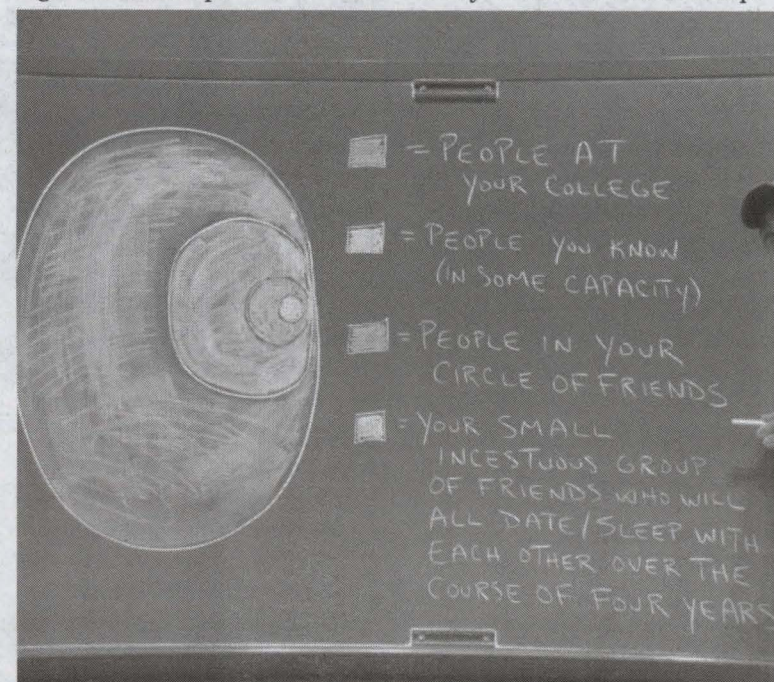 = PEOPLE AT
YOUR COLLEGE
= PEOPLE YOU KNOW
(IN SOME CAPACITY)
= PEOPLE IN YOUR
CIRCLE OF FRIENDS
= YOUR SMALL
INCESTUOUS GROUP
OF FRIENDS WHO WILL
ALL DATE/SLEEP WITH
EACH OTHER OVER THE
COURSE OF FOUR YEARS